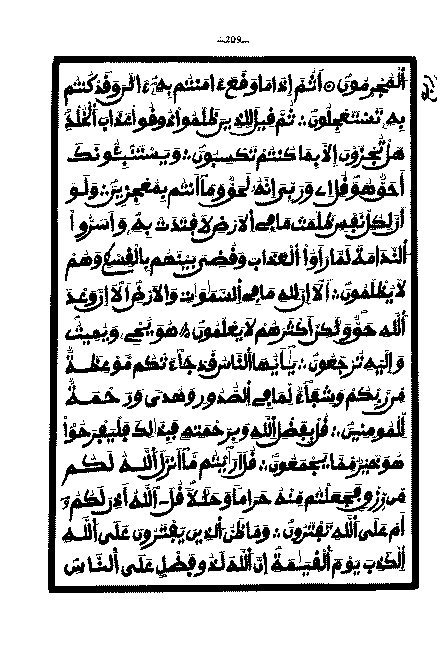 ــ209ــ
اَلْمُجْرِمُونَ ۞ أَثُمَّ إِذَا مَا وَقَعَ ءَامَنتُم بِهِۦٓ ءَآلَٰنَ وَقَدْ كُنتُم
بِهِۦ تَسْتَعْجِلُونَ ۞ ثُمَّ قِيلَ لِلذِينَ ظَلَمُواْ ذُوقُواْ عَذَابَ اَلْخُلْدِ
هَلْ تُجْزَوْنَ إِلَّا بِمَا كُنتُمْ تَكْسِبُونَ ۞ وَيَسْتَنۢبِـُٔونَكَ
أَحَقٌّ هُوَ قُلْ إِے وَرَبِّيَ إِنَّهُۥ لَحَقٌّ وَمَآ أَنتُم بِمُعْجِزِينَ ۞ وَلَوَ
اَنَّ لِكُلِّ نَفْسٍ ظَلَمَتْ مَا فِے اِلَارْضِ لَافْتَدَتْ بِهِۦ وَأَسَرُّواْ
اُلنَّدَامَةَ لَمَّا رَأَوُاْ اُلْعَذَابَ وَقُضِىَ بَيْنَهُم بِالْقِسْطِ وَهُمْ
لَا يُظْلَمُونَ ۞ أَلَآ إِنَّ لِلهِ مَا فِے اِلسَّمَٰوَٰتِ وَالَارْضِ أَلَآ إِنَّ وَعْدَ
اَللَّهِ حَقٌّ وَلَٰكِنَّ أَكْثَرَهُمْ لَا يَعْلَمُونَ ۞ هُوَ يُحْيِۦ وَيُمِيتُ
وَإِلَيْهِ تُرْجَعُونَ ۞ يَٰٓأَيُّهَا اَلنَّاسُ قَدْ جَآءَتْكُم مَّوْعِظَةٌ
مِّن رَّبِّكُمْ وَشِفَآءٌ لِّمَا فِے اِلصُّدُورِ وَهُدًى وَرَحْمَةٌ
لِّلْمُومِنِينَ ۞ قُلْ بِفَضْلِ اِللَّهِ وَبِرَحْمَتِهِۦ فَبِذَٰلِكَ فَلْيَفْرَحُواْ
هُوَ خَيْرٌ مِّمَّا يَجْمَعُونَ ۞ قُلَ اَرَٰٓيْتُم مَّآ أَنزَلَ اَللَّهُ لَكُم
مِّن رِّزْقٍ فَجَعَلْتُم مِّنْهُ حَرَامًا وَحَلَٰلًا قُلَ آللَّهُ أَذِنَ لَكُمُۥٓ
أَمْ عَلَى اَللَّهِ تَفْتَرُونَ ۞ وَمَا ظَنُّ اُلذِينَ يَفْتَرُونَ عَلَى اَللَّهِ
اِلْكَذِبَ يَوْمَ اَلْقِيَٰمَةِ إِنَّ اَللَّهَ لَذُو فَضْلٍ عَلَى اَلنَّاسِ